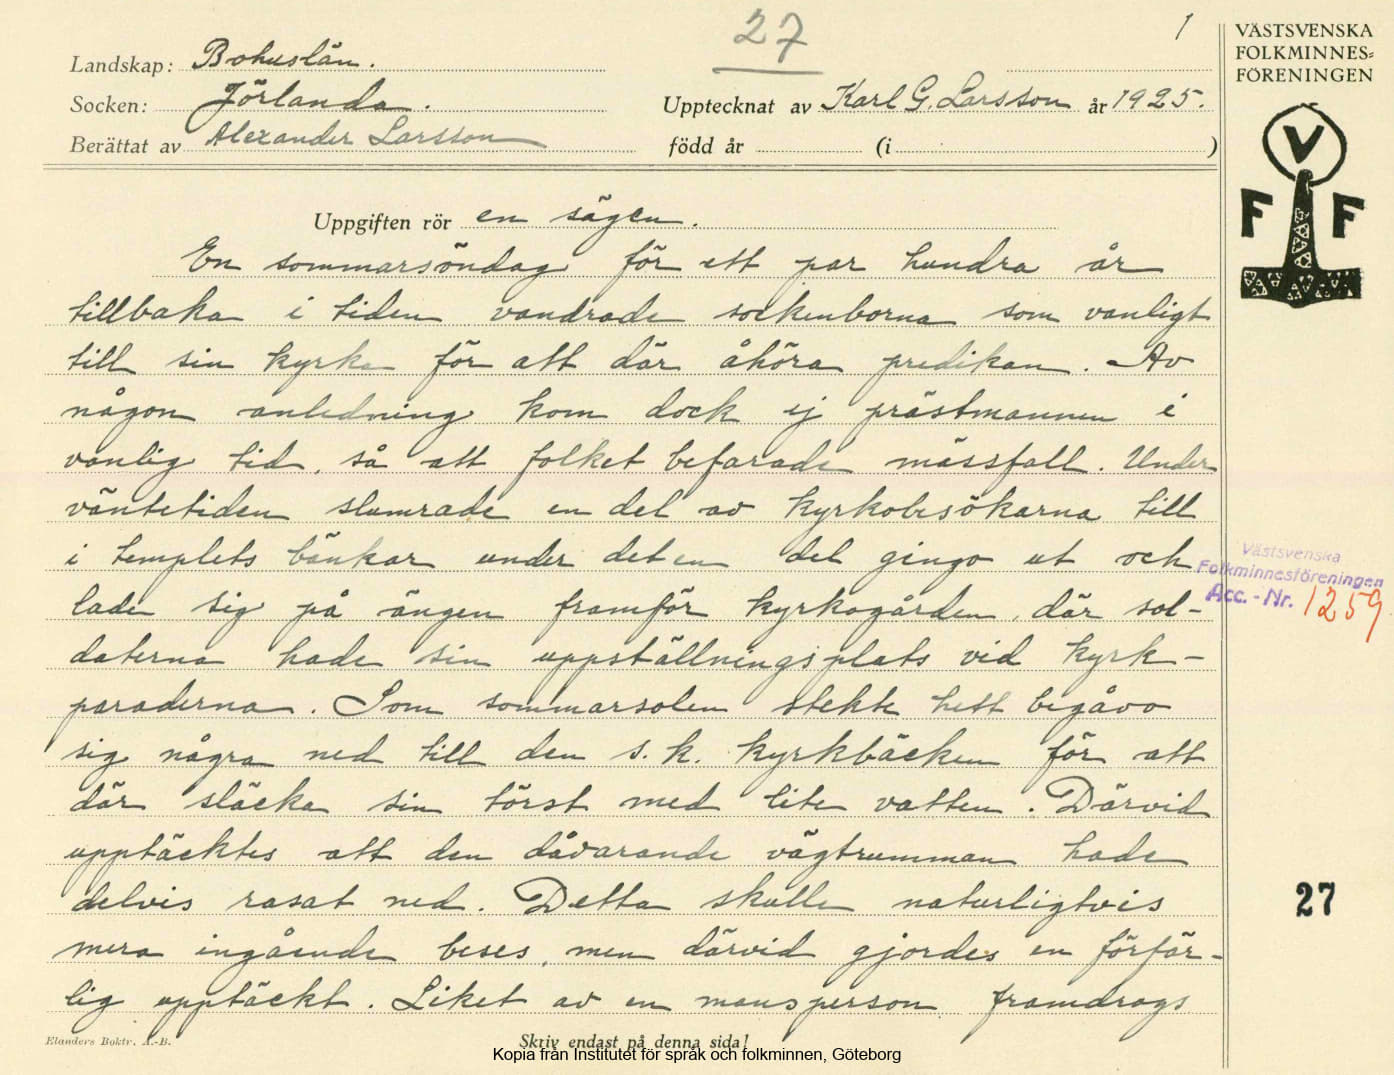 27
1
VÄSTSVENSKA
FOLKMINNES=
FÖRENINGEN
Landskap: Bohuslän.
Socken: Jörlanda.
Upptecknat av Karl G. Larsson år 1925.
Berättat av Alexander Larsson
född år (i )
V
F F
Uppgiften rör en sägen.
En sommarsöndag för ett par hundra år
tillbaka i tiden vandrade sockenborna som vanligt
till sin kyrka för att där åhöra predikan. Av
någon anledning kom dock ej prästmannen i
vanlig tid, så att folket befarade mässfall. Under
väntetiden slumrade en del av kyrkobesökarna till
i templets bänkar under det en del gingo ut och
lade sig på ängen framför kyrkogården, där sol-
daterna hade sin uppställningsplats vid kyrk-
paraderna. Som sommarsolen stekte hett begåvo
sig några ned till den s.k. kyrkbäcken för att
där släcka sin törst med lite vatten. Därvid
upptäcktes att den dåvarande vägtrumman hade
delvis rasat ned. Detta skulle naturligtvis
mera ingående beses, men därvid gjordes en förfär-
lig upptäckt. Liket av en mansperson framdrogs
Västsvenska
Folkminnesföreningen
Acc.-Nr. 1259
27
Elanders Boktr. A.-B.
Skriv endast på denna sida!
Kopia från Institutet för språk och folkminnen, Göteborg